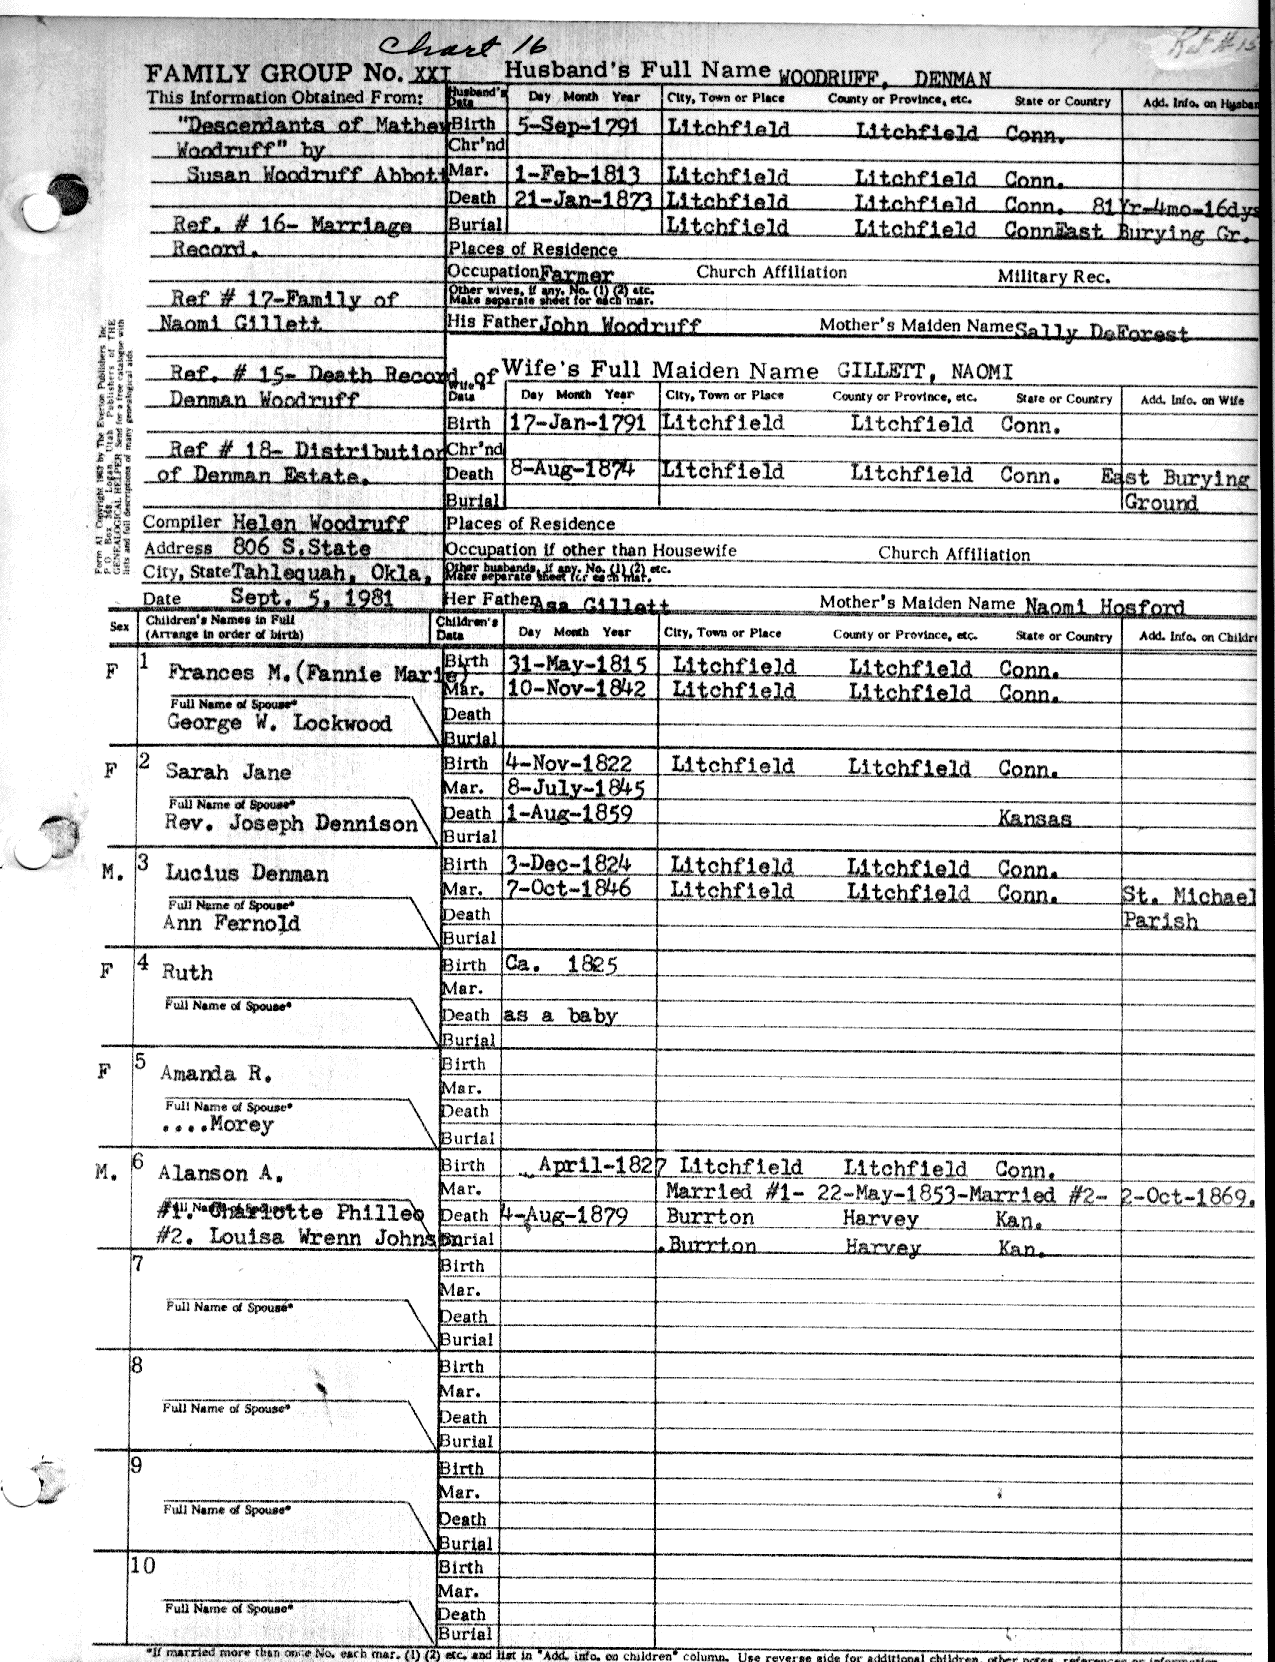 Chart 16
Ref # 15
FAMILY GROUP No. XXI Husband's Full Name WOODRUFF, DENMAN
This Information Obtained From: Husband's Data Day Month Year City, Town or Place County or Province, etc. State or Country Add. Info. on Husban
"Descendants of Mathew Birth 5-Sep-1791 Litchfield Litchfield Conn.
Woodruff" by Chr'nd
Susan Woodruff Abbott Mar. 1-Feb-1813 Litchfield Litchfield Conn.
Death 21-Jan-1873 Litchfield Litchfield Conn. 81Yr-4mo-16dys
Ref. # 16- Marriage Burial Litchfield Litchfield Conn East Burying Gr.
Record. Places of Residence
Occupation Farmer Church Affiliation Military Rec.
Ref # 17-Family of Other wives, if any. No. (1) (2) etc.
Make separate sheet for each mar.
Naomi Gillett His Father John Woodruff Mother's Maiden Name Sally DeForest
Ref. # 15- Death Record of Wife's Full Maiden Name GILLETT, NAOMI
Denman Woodruff Wife's Data Day Month Year City, Town or Place County or Province, etc. State or Country Add. Info. on Wife
Birth 17-Jan-1791 Litchfield Litchfield Conn.
Ref # 18- Distribution Chr'nd
of Denman Estate. Death 8-Aug-1874 Litchfield Litchfield Conn. East Burying
Burial Ground
Compiler Helen Woodruff Places of Residence
Address 806 S.State Occupation if other than Housewife Church Affiliation
City, State Tahlequah, Okla, Other husbands, if any. No. (1) (2) etc.
Make separate sheet for each mar.
Date Sept. 5, 1981 Her Father Asa Gillett Mother's Maiden Name Naomi Hosford
Form A1 Copyright 1963 by The Everton Publishers Inc
P. O. Box Logan, Utah Publishers of THE
GENEALOGICAL HELPER Send for a free catalogue with
lists and full descriptions of many genealogical aids
Sex Children's Names in Full
(Arrange in order of birth) Children's Data Day Month Year City, Town or Place County or Province, etc. State or Country Add. Info. on Childre
F 1 Frances M.(Fannie Marie) Birth 31-May-1815 Litchfield Litchfield Conn.
Mar. 10-Nov-1842 Litchfield Litchfield Conn.
Full Name of Spouse* Death
George W. Lockwood Burial
F 2 Sarah Jane Birth 4-Nov-1822 Litchfield Litchfield Conn.
Mar. 8-July-1845
Full Name of Spouse* Death 1-Aug-1859 Kansas
Rev. Joseph Dennison Burial
M. 3 Lucius Denman Birth 3-Dec-1824 Litchfield Litchfield Conn.
Mar. 7-Oct-1846 Litchfield Litchfield Conn. St. Michael
Full Name of Spouse* Death Parish
Ann Fernold Burial
F 4 Ruth Birth Ca. 1825
Mar.
Full Name of Spouse* Death as a baby
Burial
F 5 Amanda R. Birth
Mar.
Full Name of Spouse* Death
....Morey Burial
M. 6 Alanson A. Birth April-1827 Litchfield Litchfield Conn.
Mar. Married #1- 22-May-1853-Married #2- 2-Oct-1869.
#1. Charlotte Philleo Death 4-Aug-1879 Burrton Harvey Kan.
#2. Louisa Wrenn Johnson Burial .Burrton Harvey Kan.
7 Birth
Mar.
Full Name of Spouse* Death
Burial
8 Birth
Mar.
Full Name of Spouse* Death
Burial
9 Birth
Mar.
Full Name of Spouse* Death
Burial
10 Birth
Mar.
Full Name of Spouse* Death
Burial
*If married more than once No. each mar. (1) (2) etc. and list in "Add. info. on children" column. Use reverse side for additional children, other notes, references or information